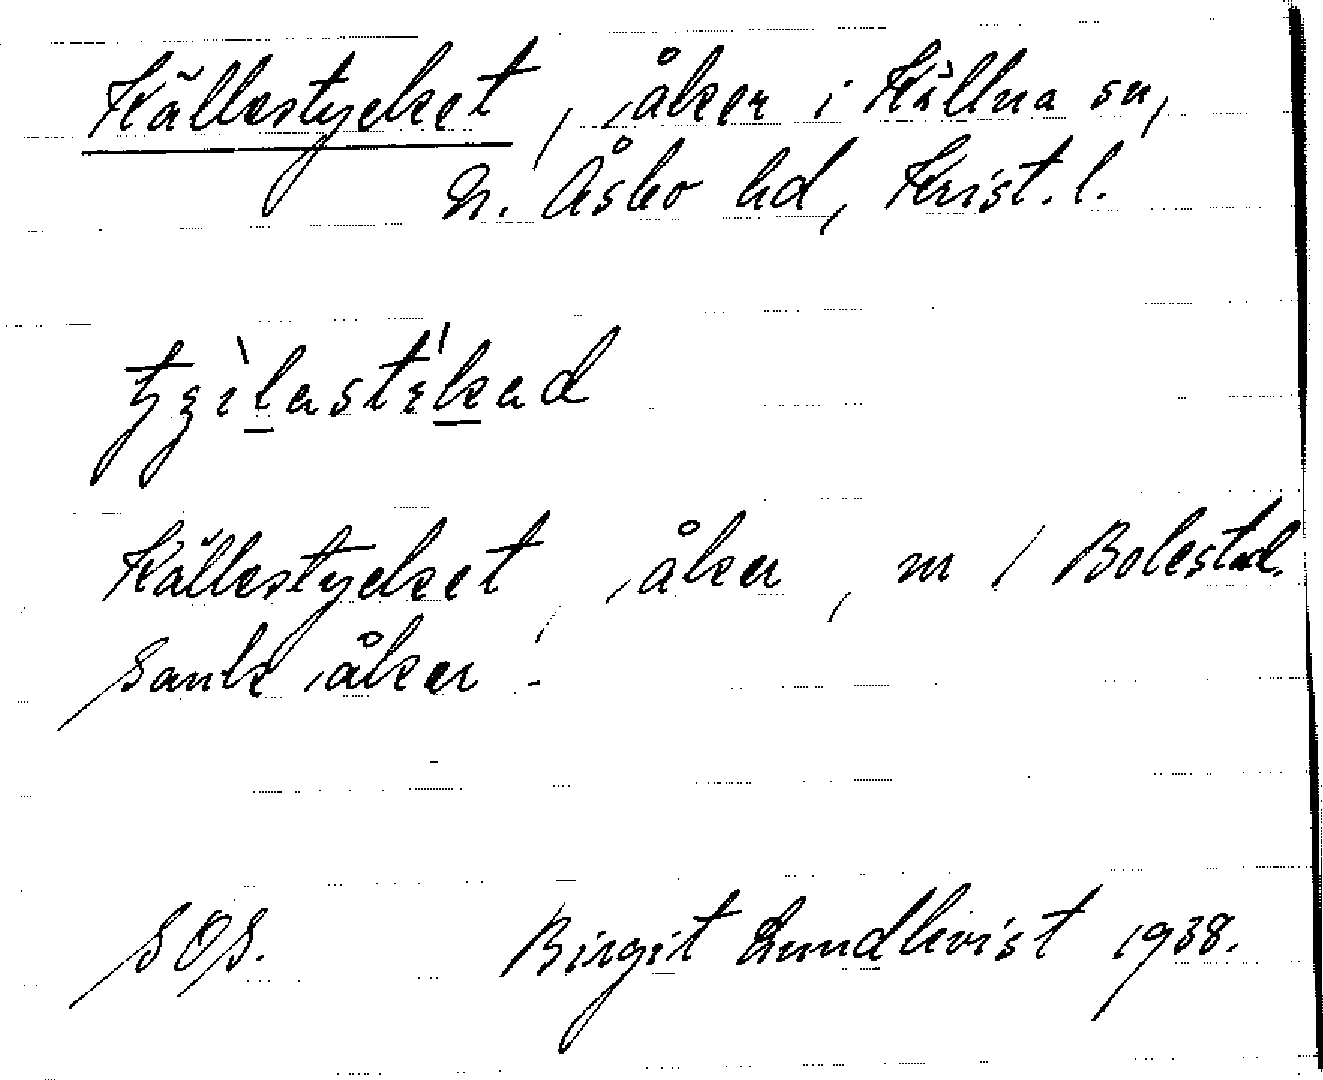 Källestycket, åker i Källna sn,
N. Åsbo hd, Krist. l.
Källestycket, åker, m / Bolestad.
Sank åker.
SOS. Birgit Lundkvist 1938.